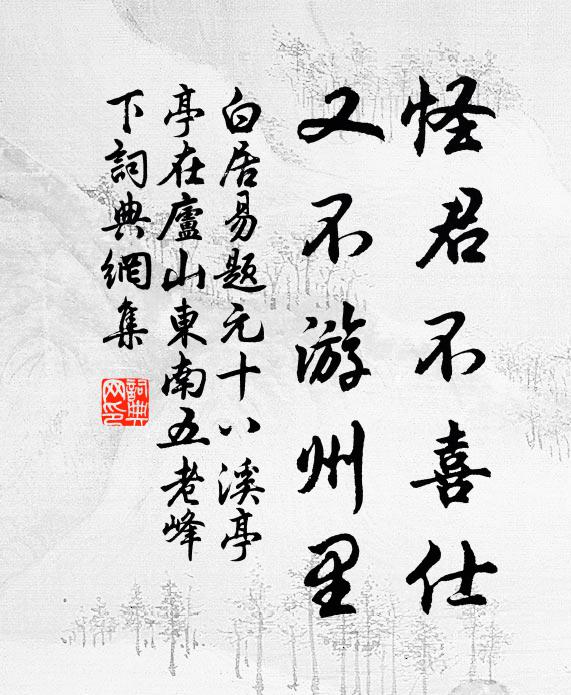 怪君不喜仕
又不游州里
白居易题元十八溪亭
亭在廬山東南五老峰
下詞典網集
詞典
网印